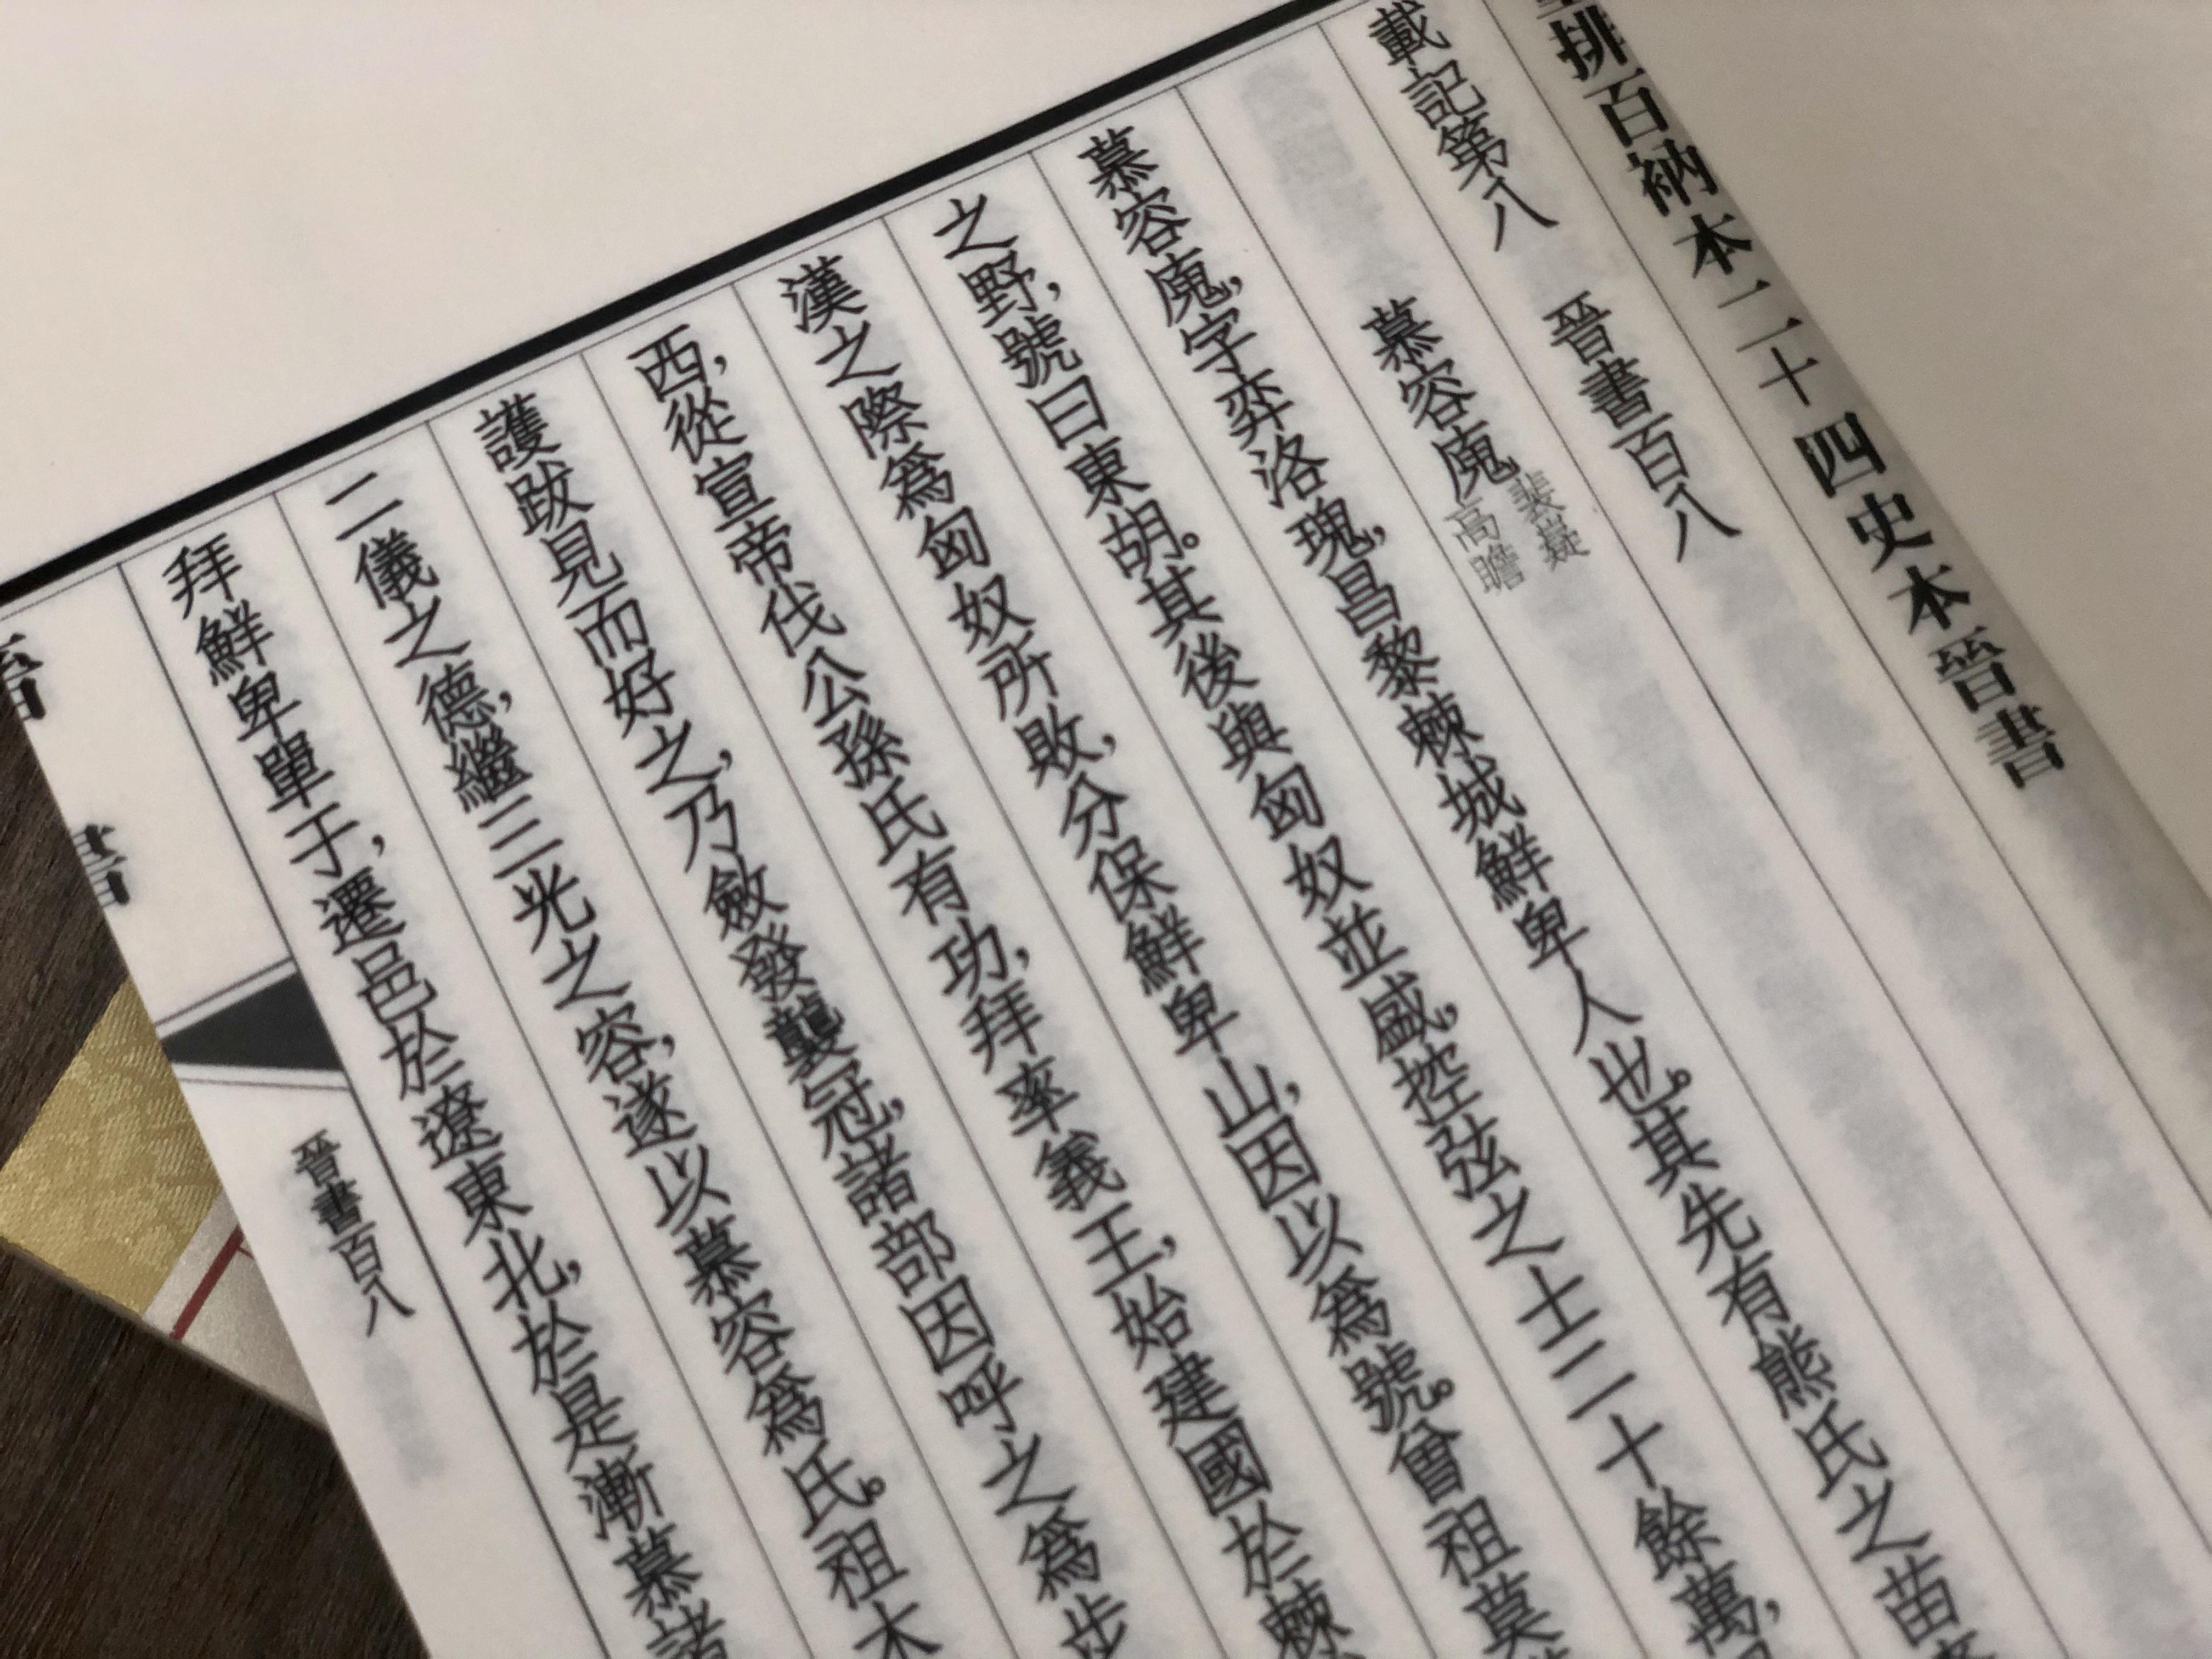 排百衲本二十四史本晉書
載記第八 晉書百八
慕容廆 裴嶷
高瞻
慕容廆,字弈洛瑰,昌黎棘城鮮卑人也。其先有熊氏之苗
之野,號曰東胡。其後與匈奴並盛,控弦之士二十餘萬,
漢之際爲匈奴所敗,分保鮮卑山,因以爲號。曾祖莫
西,從宣帝伐公孫氏有功,拜率義王,始建國於棘
護跋見而好之,乃斂發襲冠,諸部因呼之爲步
二儀之德,繼三光之容,遂以慕容爲氏。祖木
拜鮮卑單于,遷邑於遼東北,於是漸慕諸
晉書
晉書百八